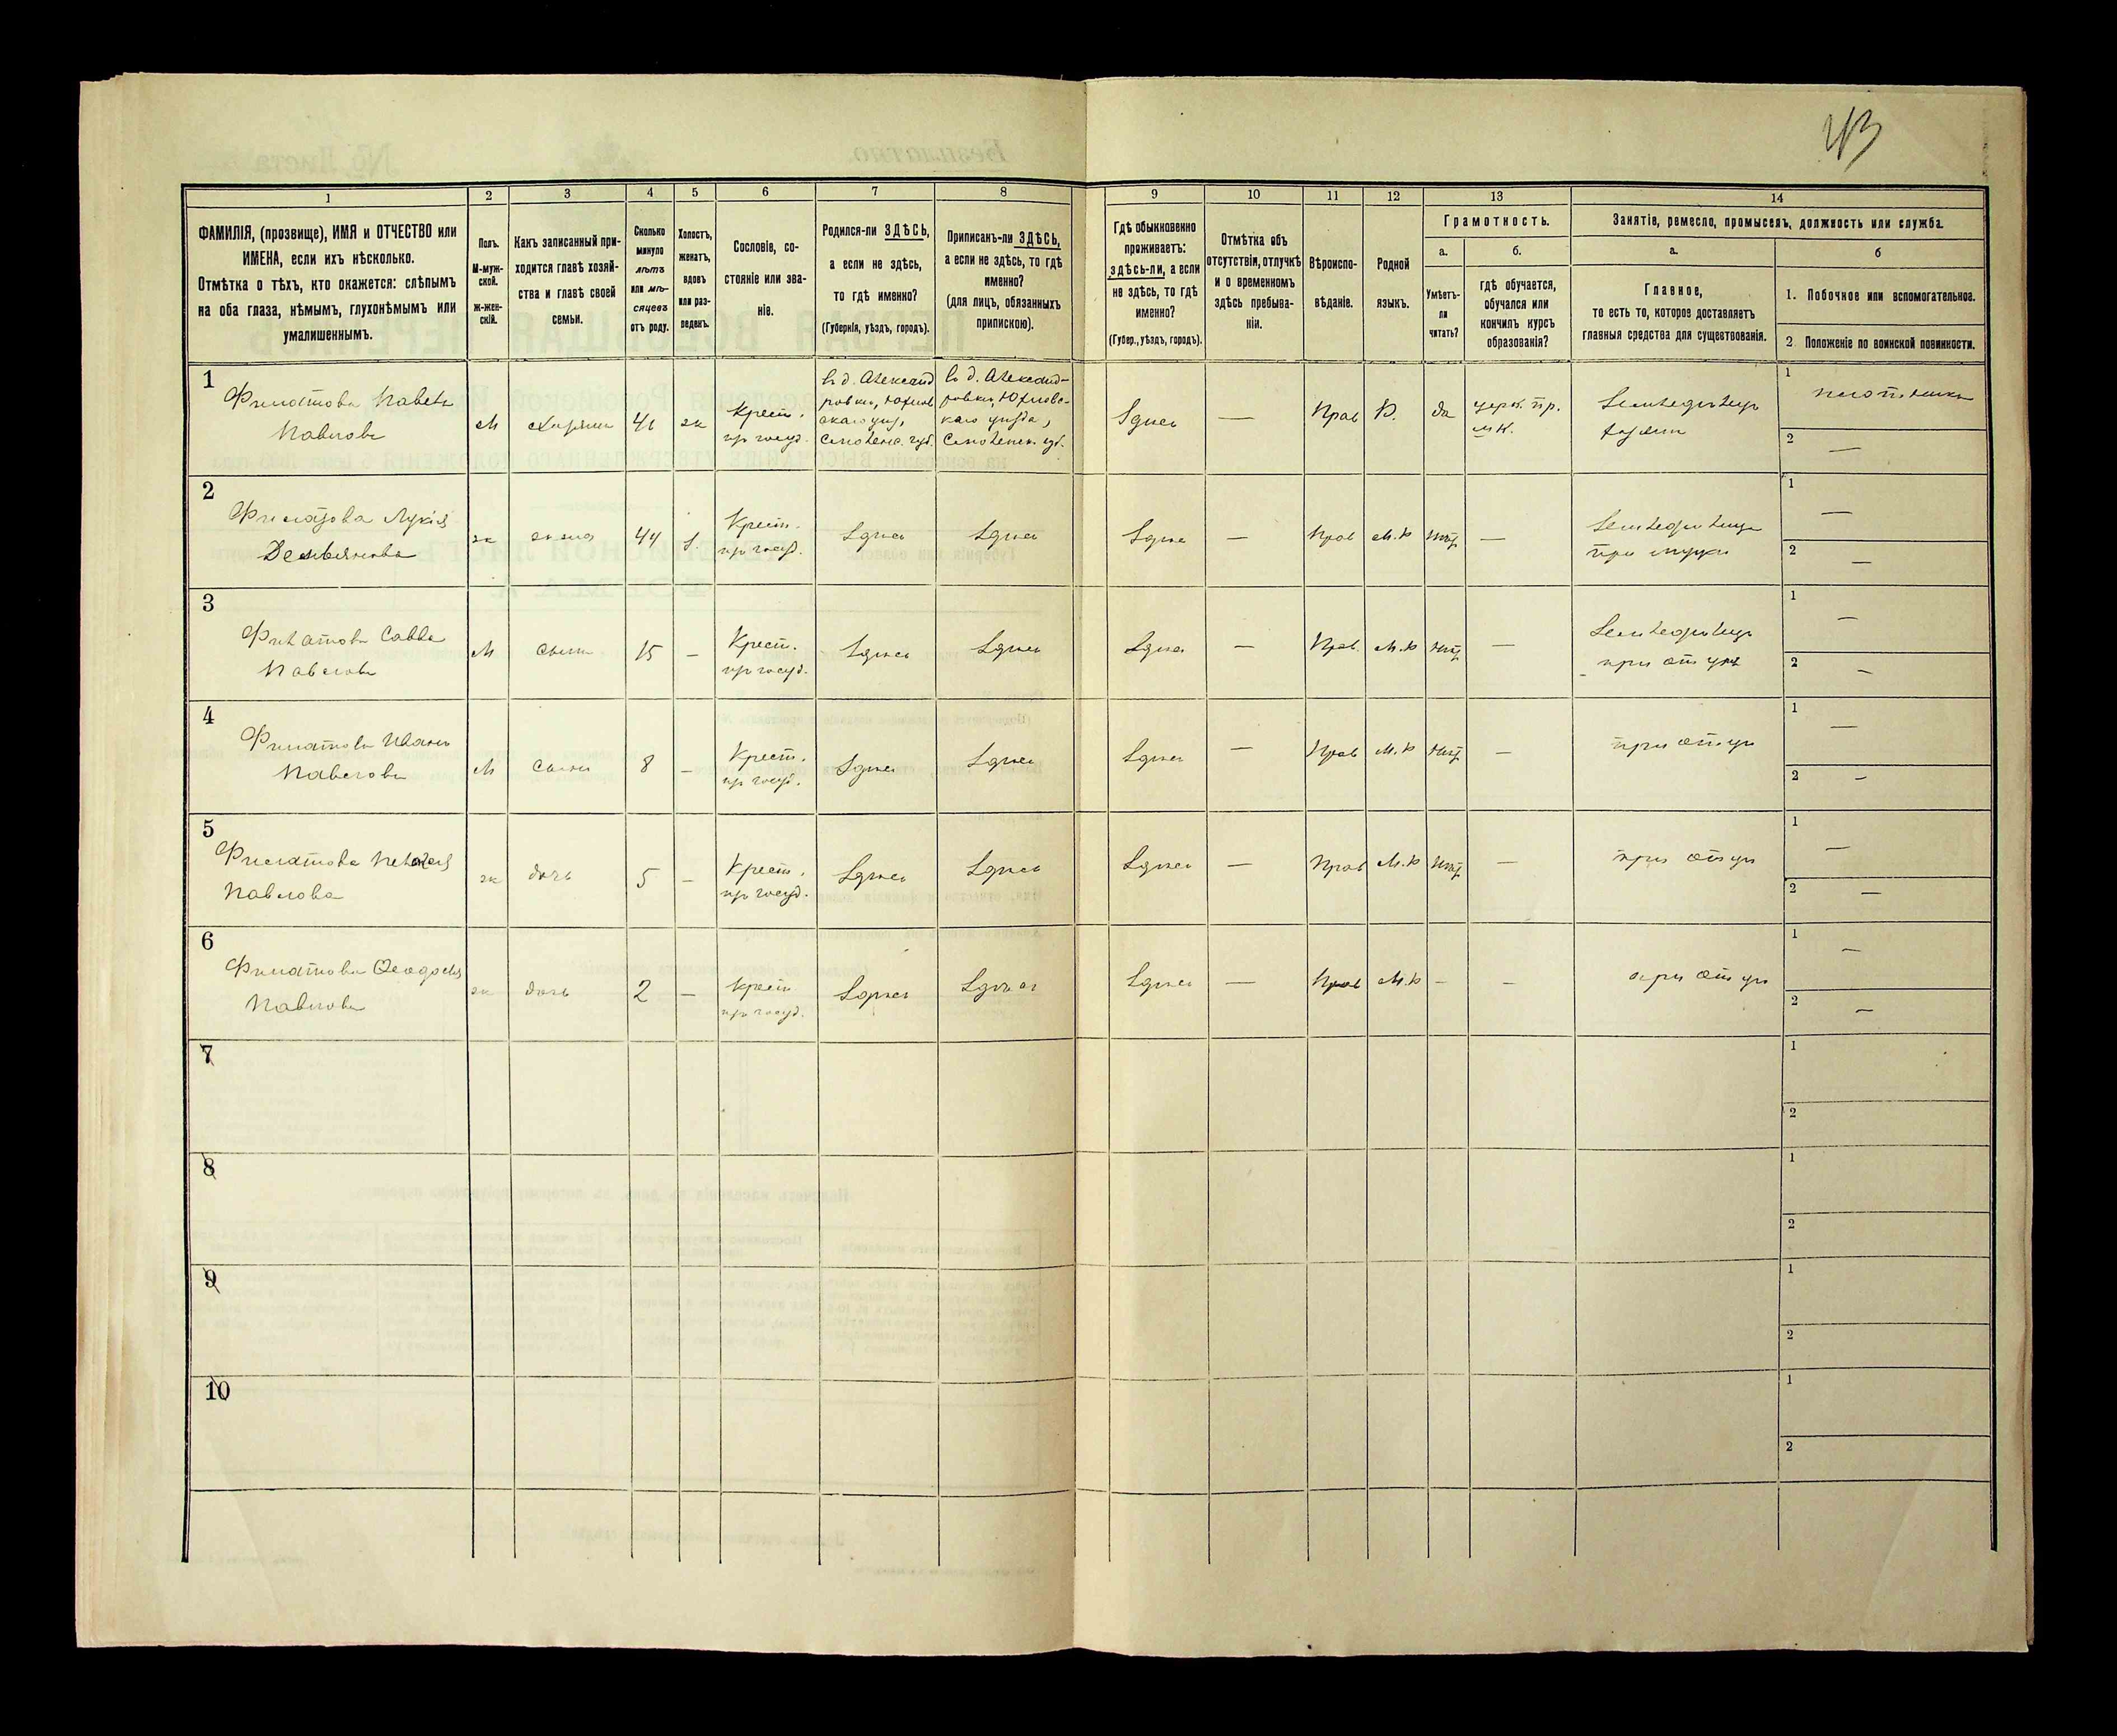 43
1 2 3 4 5 6 7 8 9 10 11 12 13 14
ФАМИЛІЯ, (прозвище), ИМЯ и ОТЧЕСТВО или
ИМЕНА, если ихъ нѣсколько.
Отмѣтка о тѣхъ, кто окажется: слѣпымъ
на оба глаза, нѣмымъ, глухонѣмымъ или
умалишеннымъ.
Полъ.
М-муж-
ской.
Ж-жен-
скій.
Какъ записанный при-
ходится главѣ хозяй-
ства и главѣ своей
семьи.
Сколько
минуло
лѣтъ
или мѣ-
сяцевъ
отъ роду.
Холостъ,
женатъ,
вдовъ
или раз-
веденъ.
Сословіе, со-
стояніе или зва-
ніе.
Родился-ли ЗДѢСЬ,
а если не здѣсь,
то гдѣ именно?
(Губернія, уѣздъ, городъ).
Приписанъ-ли ЗДѢСЬ,
а если не здѣсь, то гдѣ
именно?
(для лицъ, обязанныхъ
припискою).
Гдѣ обыкновенно
проживаетъ:
здѣсь-ли, а если
не здѣсь, то гдѣ
именно?
(Губер., уѣздъ, городъ).
Отмѣтка объ
отсутствіи, отлучкѣ
и о временномъ
здѣсь пребыва-
ніи.
Вѣроиспо-
вѣданіе.
Родной
языкъ.
Грамотность.
а.
Умѣетъ-
ли
читать?
б.
гдѣ обучается,
обучался или
кончилъ курсъ
образованія?
Занятіе, ремесло, промыселъ, должность или служба.
а.
Главное,
то есть то, которое доставляетъ
главныя средства для существованія.
б
1. Побочное или вспомогательное.
2 Положеніе по воинской повинности.
1
Филатовъ Павелъ
Павловъ
М
Хозяинъ
41
ж
Крест.
пр госуд.
въ д. Александ
ровки, Юхнов
скаго уѣз,
Смоленс. губ.
въ д. Александ-
ровки, Юхновс-
каго уѣзда,
Смоленск. губ.
Здѣсь
—
Прав
да
церк. пр.
шк.
Земледѣлецъ
хозяин
1 плотникъ
2 —
2
Филатова Лукія
Демьянова
ж
жена
44
Крест.
пр госуд.
Здѣсь
Здѣсь
Здѣсь
—
Прав
М.р
нѣт
—
Земледѣлица
при мужи
1 —
2 —
3
Филатовъ Савва
Павловъ
М
сынъ
15
–
Крест.
пр госуд.
Здѣсь
Здѣсь
Здѣсь
—
Прав.
М.р
нѣт
—
Земледѣлецъ
при отцѣ
1 —
2 –
4
Филатовъ Иванъ
Павловъ
М
сынъ
8
–
Крест.
пр госуд.
Здѣсь
Здѣсь
Здѣсь
—
Прав
М.р
нѣт
–
при отцѣ
1 —
2 –
5
Филатова Пелагея
Павлова
ж
дочь
5
–
Крест.
пр госуд.
Здѣсь
Здѣсь
Здѣсь
—
Прав
М.р
нѣт
—
при отцѣ
1 —
2 —
6
Филатова Ѳеодосья
Павлова
ж
дочь
2
–
Крест
пр госуд.
Здѣсь
Здѣсь
Здѣсь
—
Прав
М.р
–
–
при отцѣ
1 —
2 –
7
1
2
8
1
2
9
1
2
10
1
2